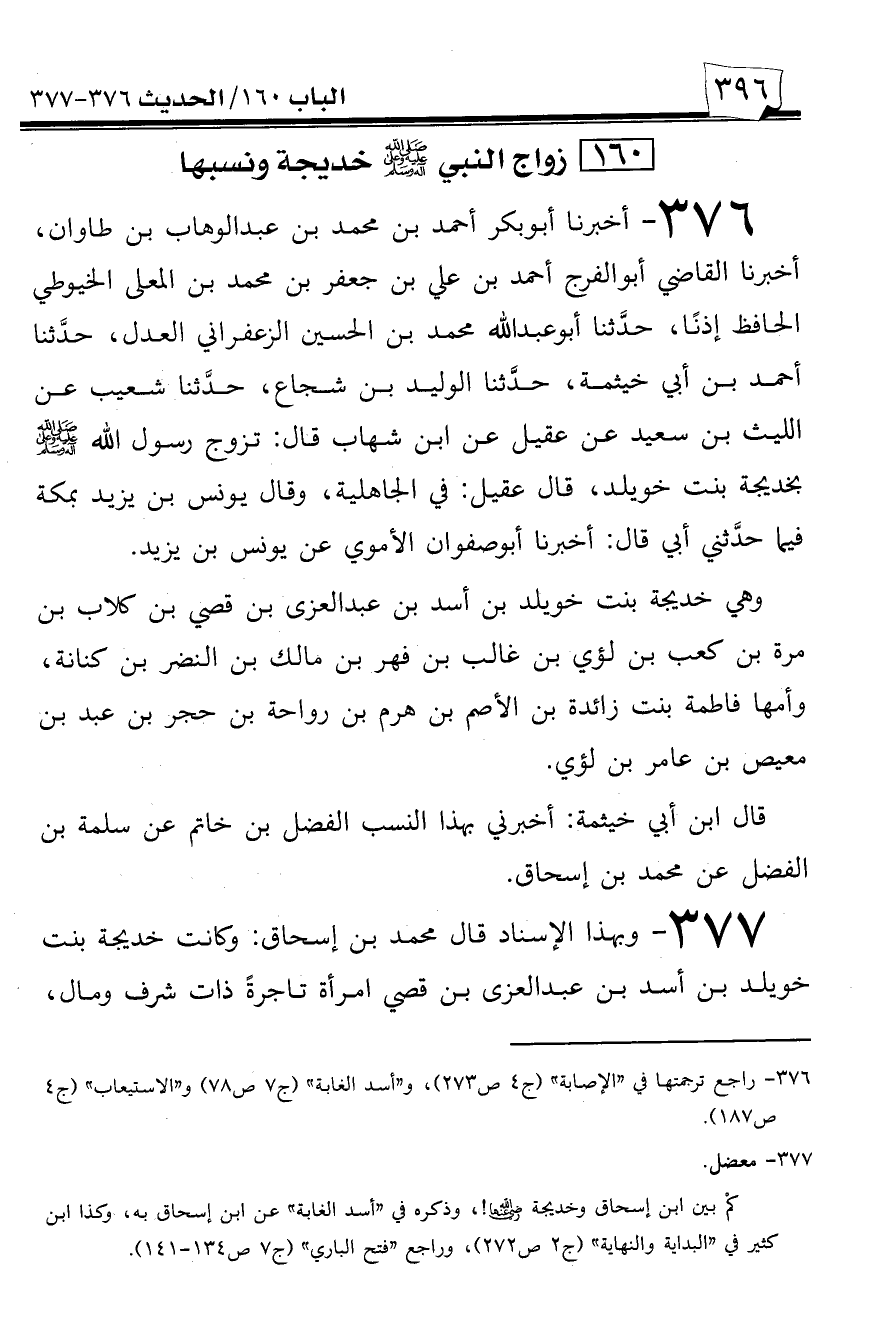 ٣٩٦
الباب ١٦٠/ الحديث ٣٧٦-٣٧٧
١٦٠ زواج النبي ﷺ خديجة ونسبها
٣٧٦- أخبرنا أبوبكر أحمد بن محمد بن عبدالوهاب بن طاوان،
أخبرنا القاضي أبوالفرج أحمد بن علي بن جعفر بن محمد بن المعلى الخيوطي
الحافظ إذنًا، حدَّثنا أبوعبدالله محمد بن الحسين الزعفراني العدل، حدَّثنا
أحمد بن أبي خيثمة، حدَّثنا الوليد بن شجاع، حدَّثنا شعيب عن
الليث بن سعيد عن عقيل عن ابن شهاب قال: تزوج رسول الله ﷺ
بخديجة بنت خويلد، قال عقيل: في الجاهلية، وقال يونس بن يزيد بمكة
فيما حدَّثني أبي قال: أخبرنا أبوصفوان الأموي عن يونس بن يزيد.
وهي خديجة بنت خويلد بن أسد بن عبدالعزى بن قصي بن كلاب بن
مرة بن كعب بن لؤي بن غالب بن فهر بن مالك بن النضر بن كنانة،
وأمها فاطمة بنت زائدة بن الأصم بن هرم بن رواحة بن حجر بن عبد بن
معيص بن عامر بن لؤي.
قال ابن أبي خيثمة: أخبرني بهذا النسب الفضل بن خاتم عن سلمة بن
الفضل عن محمد بن إسحاق.
٣٧٧- وبهذا الإسناد قال محمد بن إسحاق: وكانت خديجة بنت
خويلد بن أسد بن عبدالعزى بن قصي امرأة تاجرةً ذات شرف ومال،
٣٧٦- راجع ترجمتها في «الإصابة» (ج٤ ص٢٧٣)، و«أسد الغابة» (ج٧ ص٧٨) و«الاستيعاب» (ج٤
ص١٨٧).
٣٧٧- معضل.
كمْ بين ابن إسحاق وخديجة رضي الله عنها!، وذكره في «أسد الغابة» عن ابن إسحاق به، وكذا ابن
كثير في «البداية والنهاية» (ج٢ ص٢٧٢)، وراجع «فتح الباري» (ج٧ ص١٣٤-١٤١).